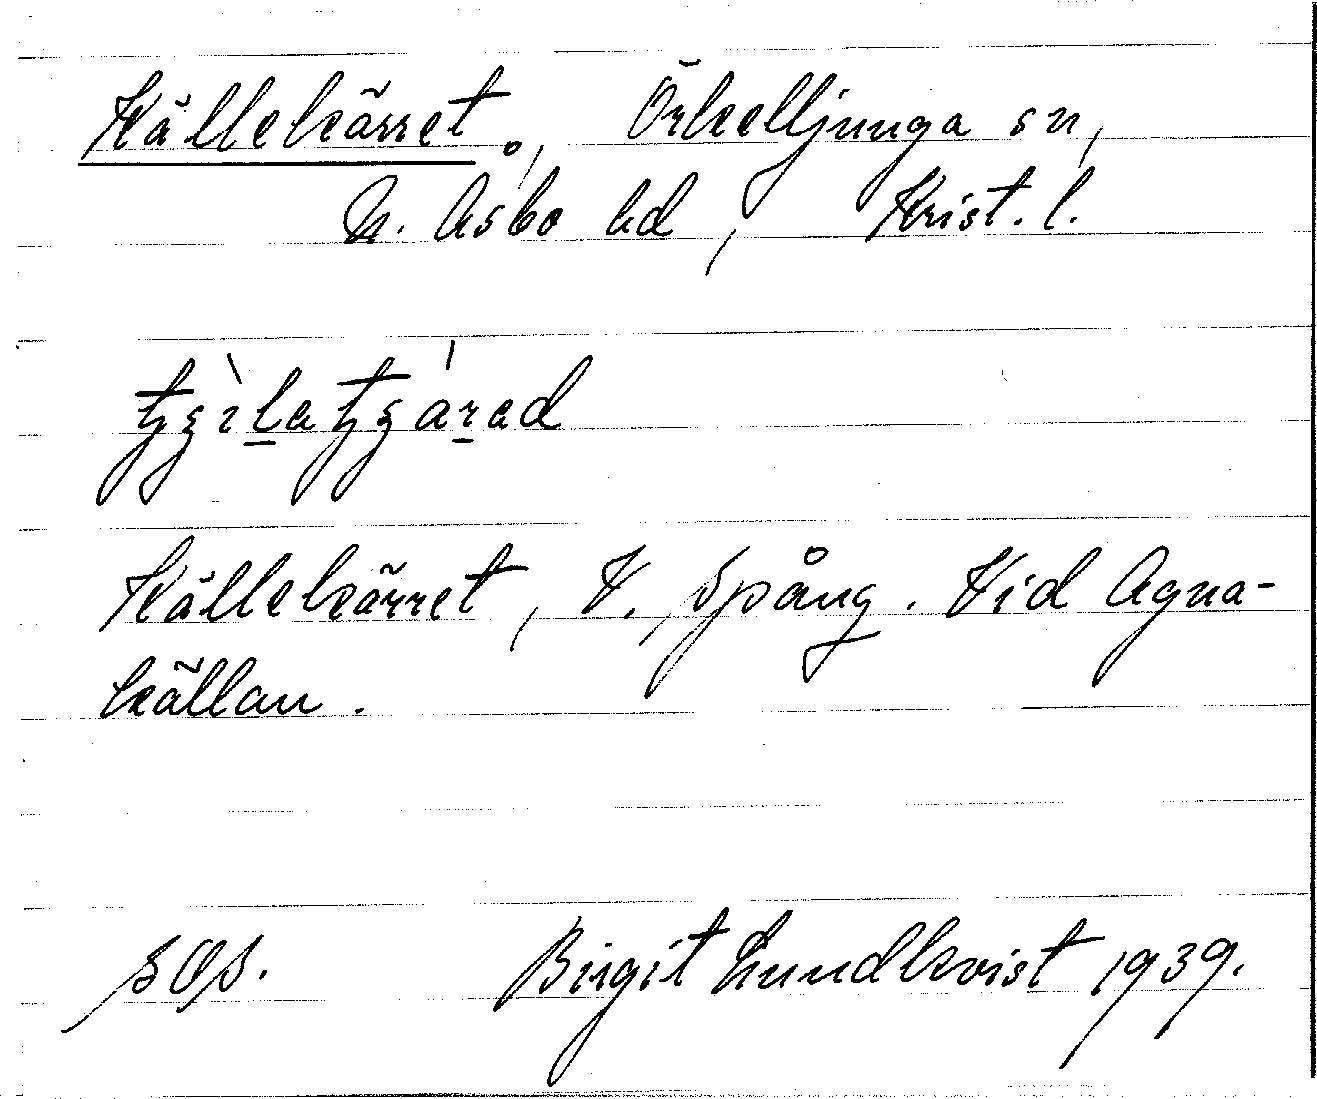 Källekärret., Örkelljunga sn,
N. Åsbo hd, Krist. l.
Källekärret, V. Spång. Vid Agna-
källan.
Birgit Lundkvist 1939.